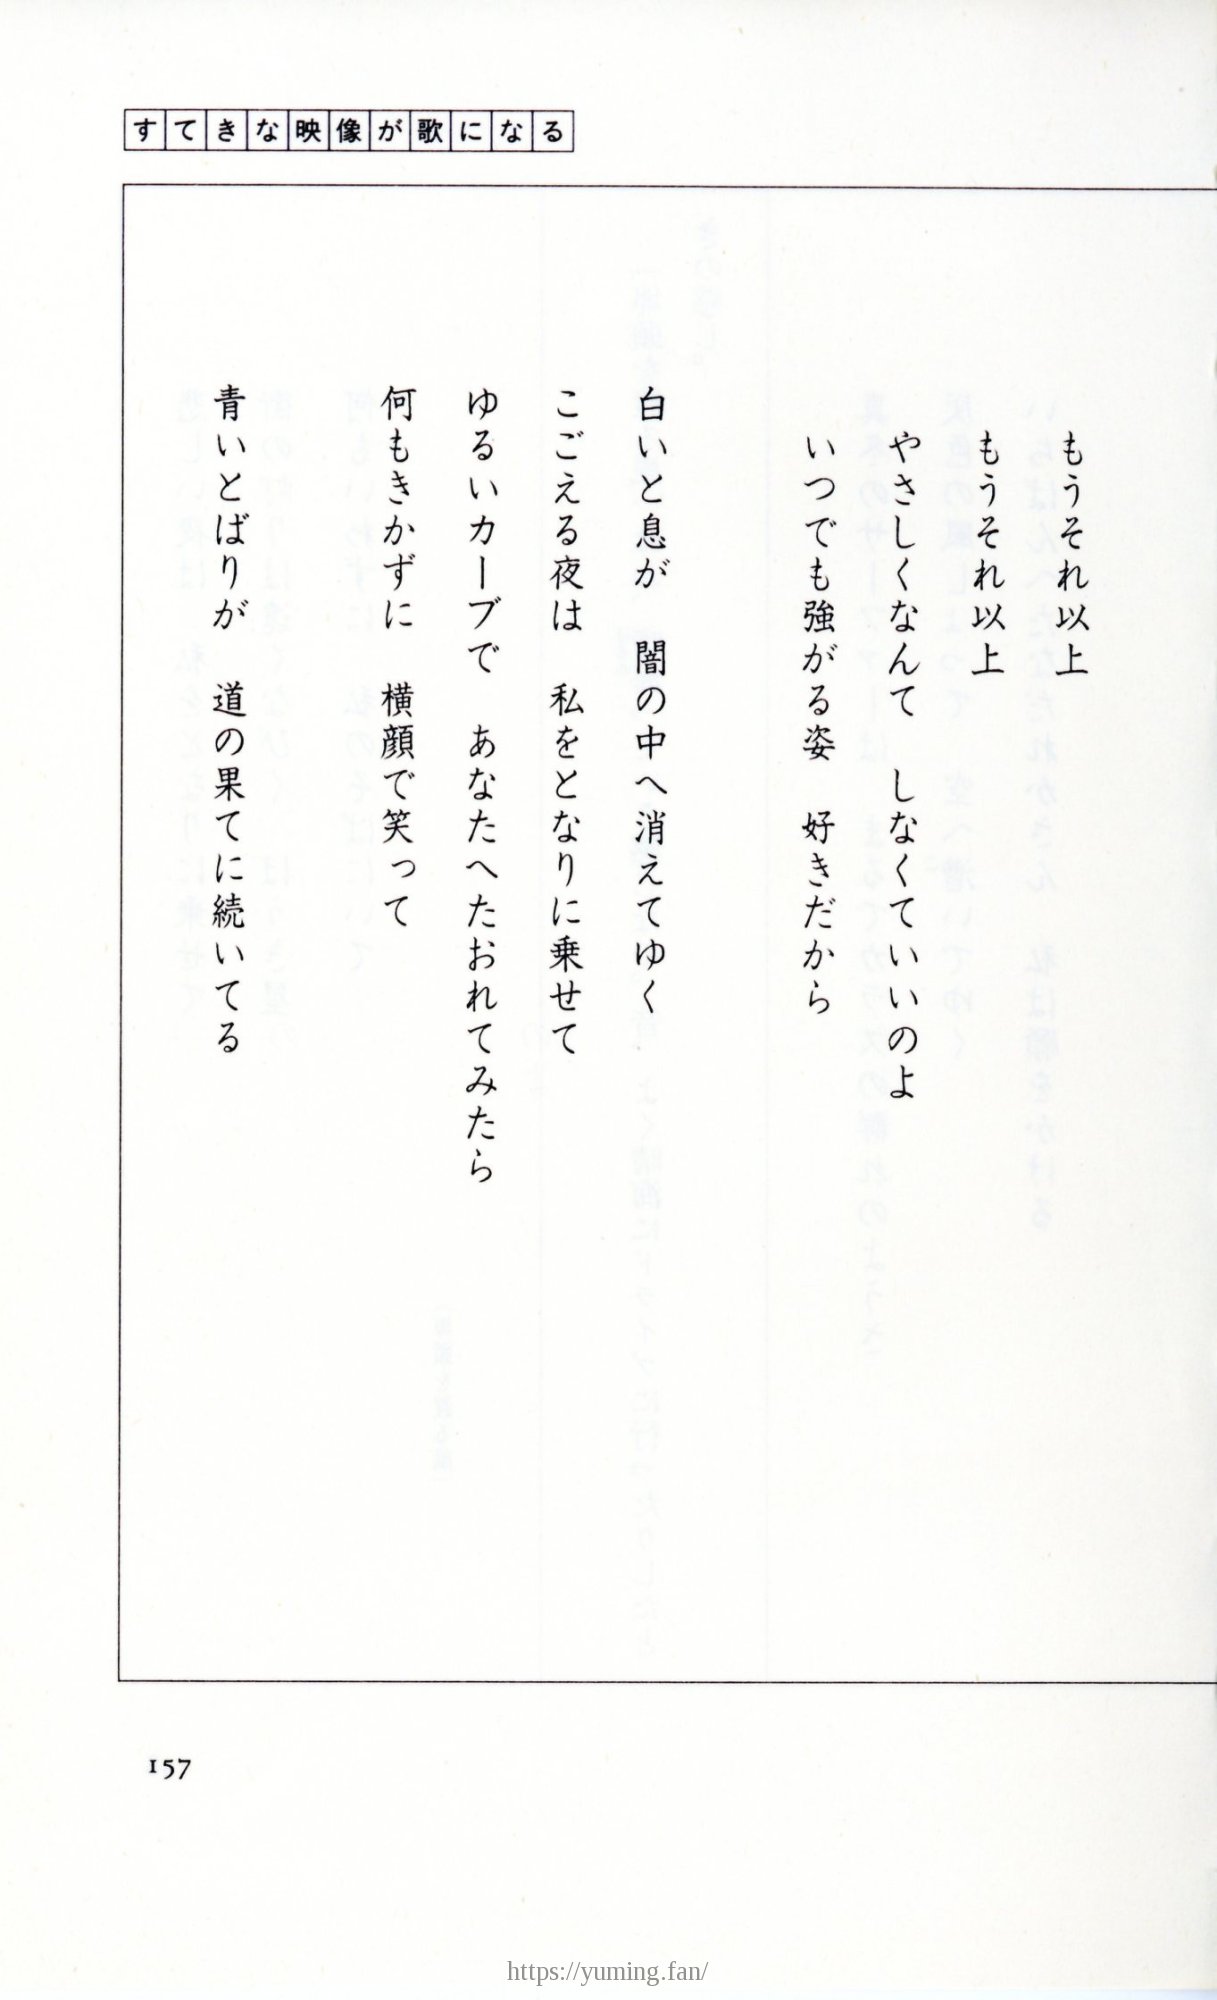 すてきな映像が歌になる
もうそれ以上
もうそれ以上
やさしくなんて　しなくていいのよ
いつでも強がる姿　好きだから
白いと息が　闇の中へ消えてゆく
こごえる夜は　私をとなりに乗せて
ゆるいカーブで　あなたへたおれてみたら
何もきかずに　横顔で笑って
青いとばりが　道の果てに続いてる
157
https://yuming.fan/